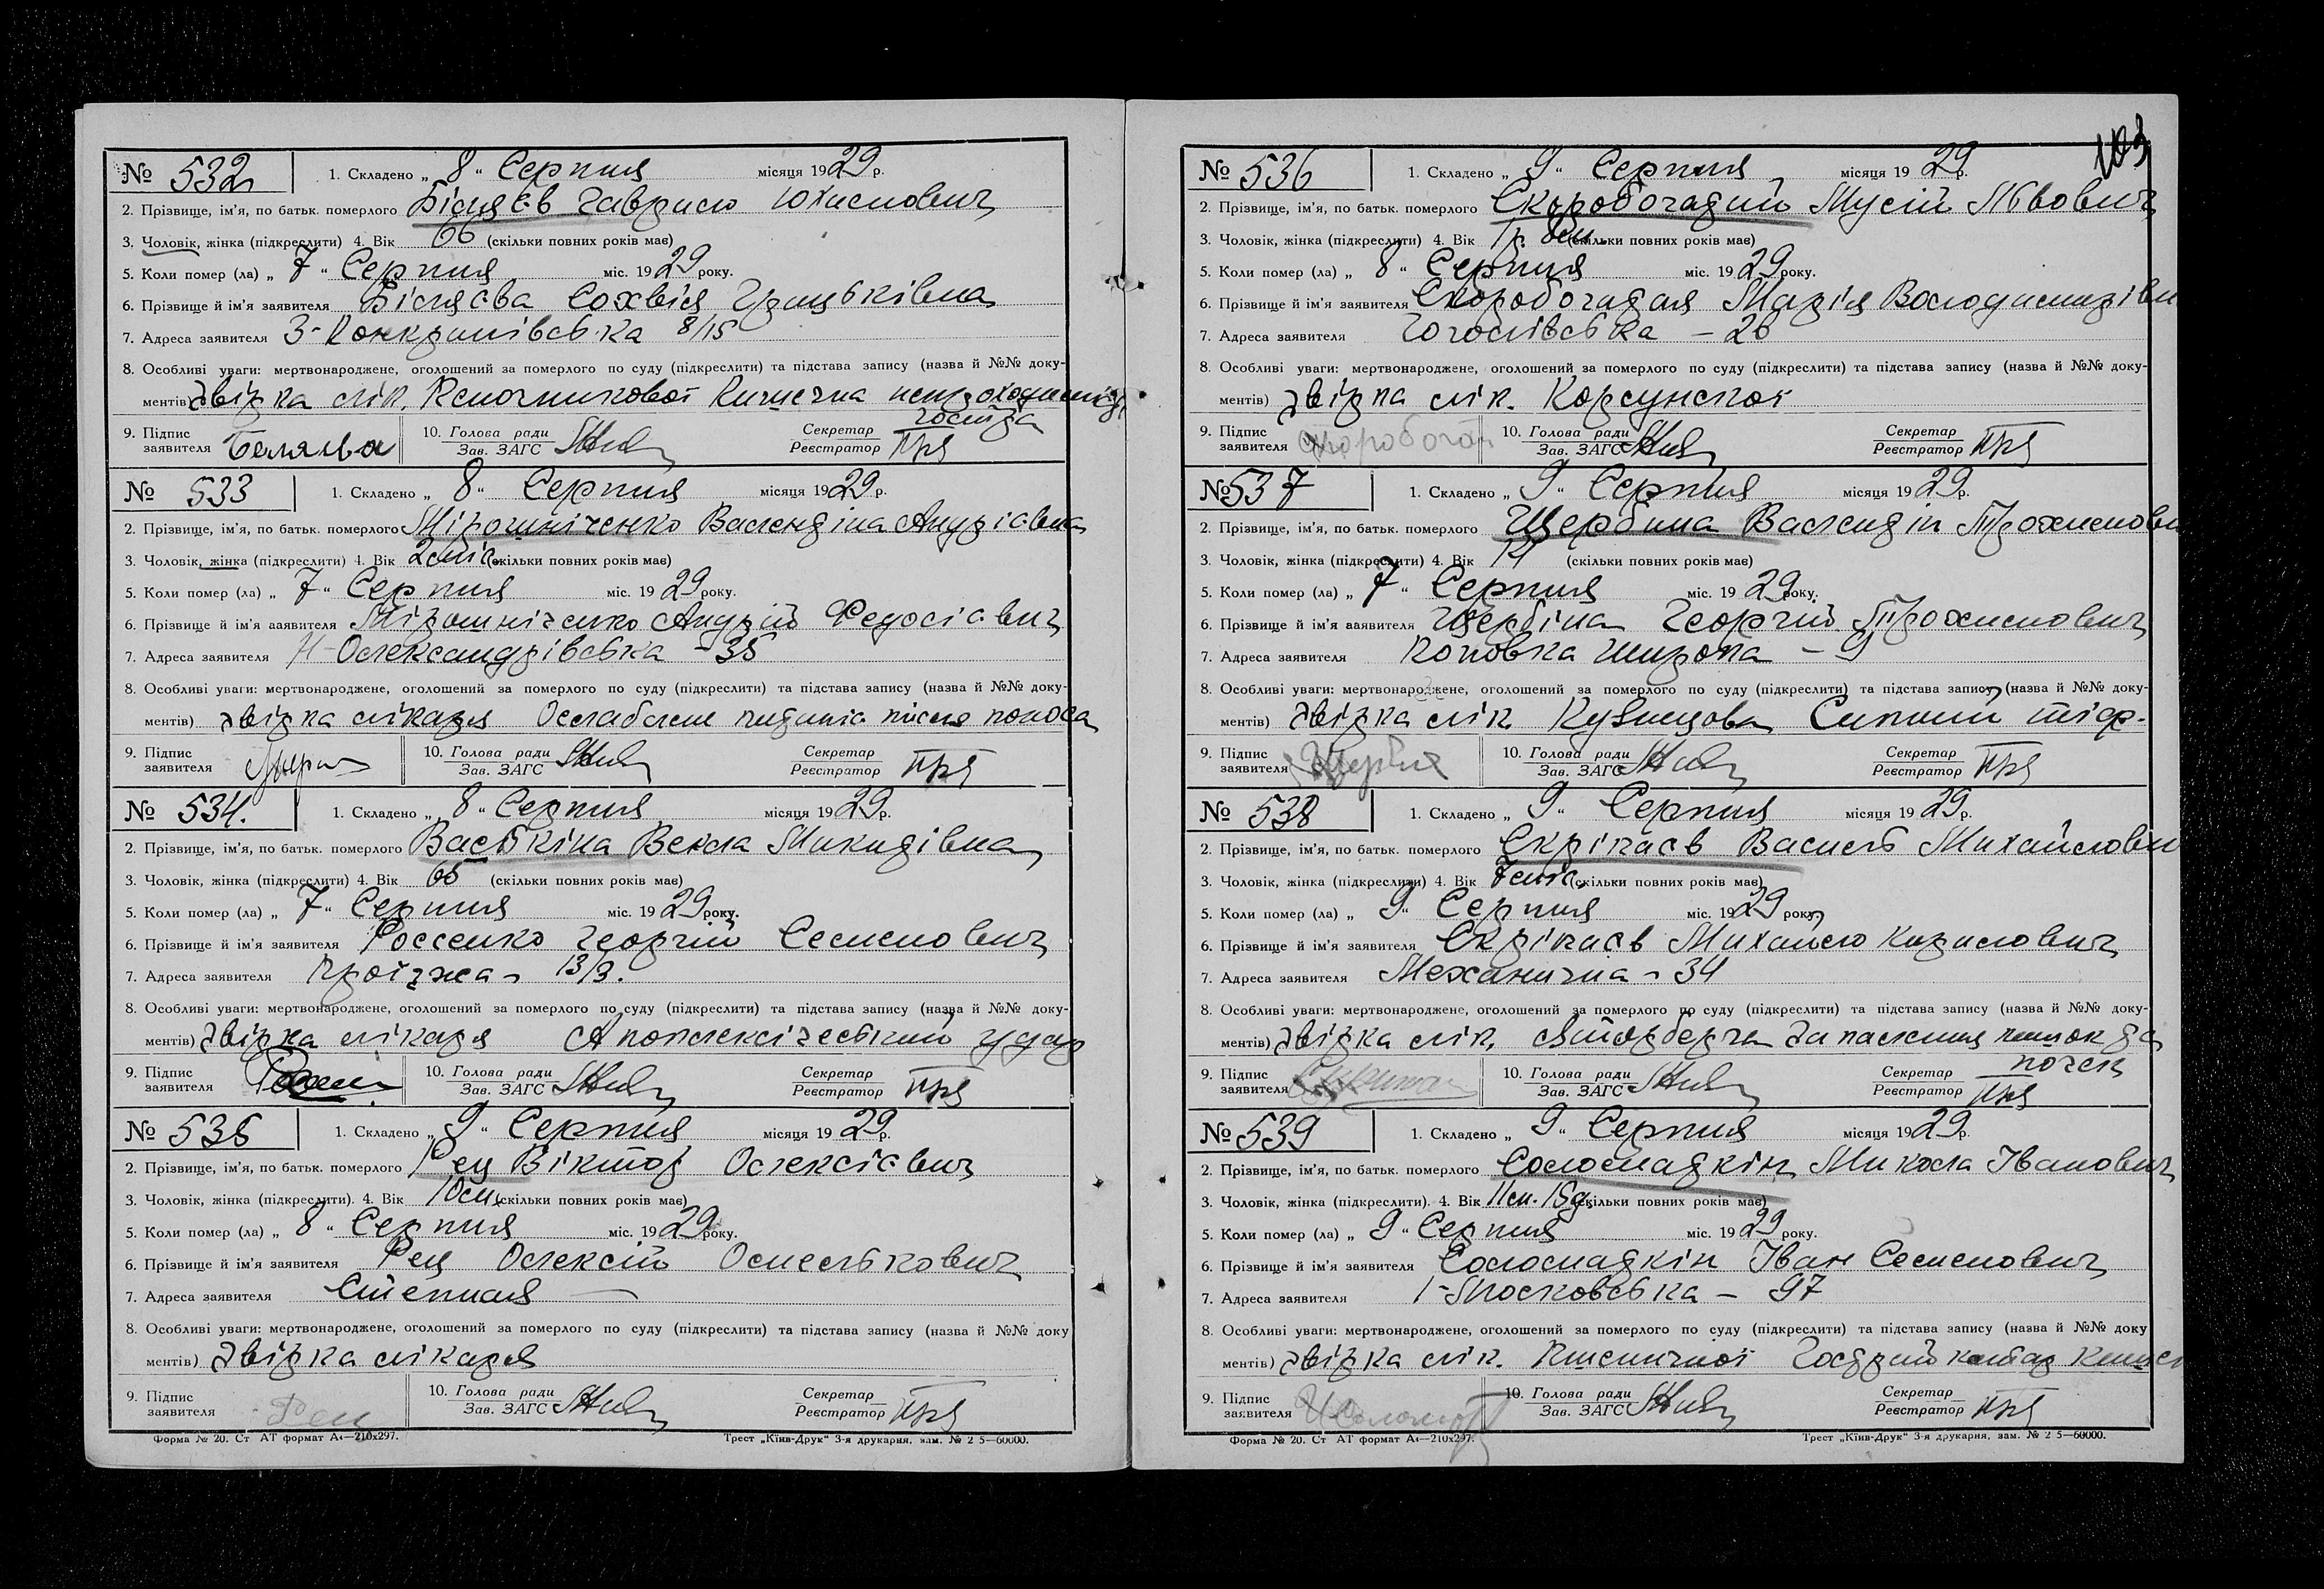 103
№ 532 1. Складено „ 8 “ Серпня місяця 1929 р.
2. Прізвище, ім'я, по батьк. померлого Біляєв Гаврило Юхимович
3. Чоловік, жінка (підкреслити) 4. Вік 66 (скільки повних років має)
5. Коли помер (ла) „ 7 “ Серпня міс. 1929 року.
6. Прізвище й ім'я заявителя Біляєва Сохвія Грицьківна
7. Адреса заявителя 8/15
8. Особливі уваги: мертвонароджене, оголошений за померлого по суду (підкреслити) та підстава запису (назва й №№ доку-
ментів) Двірка лік. Ключникової Кишечна
гостра
9. Підпис заявителя Беляева 10. Голова ради Зав. ЗАГС Секретар Реєстратор
№ 533 1. Складено „ 8 “ Серпня місяця 1929 р.
2. Прізвище, ім'я, по батьк. померлого Мірошніченко Валендіна Андріівна
3. Чоловік, жінка (підкреслити) 4. Вік 2 міс. (скільки повних років має)
5. Коли помер (ла) „ 7 “ Серпня міс. 1929 року.
6. Прізвище й ім'я заявителя Мірошніченко Андрій Федосієвич
7. Адреса заявителя Н-Олександрівська - 35
8. Особливі уваги: мертвонароджене, оголошений за померлого по суду (підкреслити) та підстава запису (назва й №№ доку-
ментів) Двірка лікаря після поноса
9. Підпис заявителя 10. Голова ради Зав. ЗАГС Секретар Реєстратор
№ 534. 1. Складено „ 8 “ Серпня місяця 1929 р.
2. Прізвище, ім'я, по батьк. померлого Васькіна Векла Микидівна
3. Чоловік, жінка (підкреслити) 4. Вік 65 (скільки повних років має)
5. Коли помер (ла) „ 7 “ Серпня міс. 1929 року.
6. Прізвище й ім'я заявителя Россенко Георгій Семенович
7. Адреса заявителя Проїзжа - 13/3.
8. Особливі уваги: мертвонароджене, оголошений за померлого по суду (підкреслити) та підстава запису (назва й №№ доку-
ментів) Двірка лікаря Апоплексічеський удар
9. Підпис заявителя 10. Голова ради Зав. ЗАГС Секретар Реєстратор
№ 535 1. Складено „ 9 “ Серпня місяця 1929 р.
2. Прізвище, ім'я, по батьк. померлого Рец Віктор Олексієвич
3. Чоловік, жінка (підкреслити). 4. Вік 10 м. (скільки повних років має)
5. Коли помер (ла) „ 8 “ Серпня міс. 1929 року.
6. Прізвище й ім'я заявителя Рец Олексій Омелькович
7. Адреса заявителя Степная —
8. Особливі уваги: мертвонароджене, оголошений за померлого по суду (підкреслити) та підстава запису (назва й №№ доку
ментів) Двірка лікаря
9. Підпис заявителя Рец 10. Голова ради Зав. ЗАГС Секретар Реєстратор
Форма № 20. Ст АТ формат А4—210х297. Трест „Київ-Друк“ 3-я друкарня, зам. № 2 5—60000.
№ 536 1. Складено „ 9 “ Серпня місяця 1929 р.
2. Прізвище, ім'я, по батьк. померлого Скоробогадий Мусій Львович
3. Чоловік, жінка (підкреслити) 4. Вік 1 р. 8 м. (скільки повних років має)
5. Коли помер (ла) „ 8 “ Серпня міс. 1929 року.
6. Прізвище й ім'я заявителя Скоробогадая Марія Володимирівн
7. Адреса заявителя Гоголівська - 26
8. Особливі уваги: мертвонароджене, оголошений за померлого по суду (підкреслити) та підстава запису (назва й №№ доку-
ментів) Двірка лік. Корсунской
9. Підпис заявителя Скоробогат 10. Голова ради Зав. ЗАГС Секретар Реєстратор
№ 537 1. Складено „ 9 “ Серпня місяця 1929 р.
2. Прізвище, ім'я, по батьк. померлого Щербина Валендін Трохимови
3. Чоловік, жінка (підкреслити) 4. Вік 14 (скільки повних років має)
5. Коли помер (ла) „ 7 “ Серпня міс. 1929 року.
6. Прізвище й ім'я заявителя Щербіна Георгій Трохимович
7. Адреса заявителя Коповка Широка - 9
8. Особливі уваги: мертвонароджене, оголошений за померлого по суду (підкреслити) та підстава запису (назва й №№ доку-
ментів) Двірка лік Кузнецова Сипний тіф.
9. Підпис заявителя Щербин 10. Голова ради Зав. ЗАГС Секретар Реєстратор
№ 538 1. Складено „ 9 “ Серпня місяця 1929 р.
2. Прізвище, ім'я, по батьк. померлого Скріпаєв Василь Михайлови
3. Чоловік, жінка (підкреслити) 4. Вік 7 міс. (скільки повних років має)
5. Коли помер (ла) „ 9 “ Серпня міс. 1929 року
6. Прізвище й ім'я заявителя Скріпаєв Михайло Кирилович
7. Адреса заявителя Механична - 34
8. Особливі уваги: мертвонароджене, оголошений за померлого по суду (підкреслити) та підстава запису (назва й №№ доку-
ментів) Двірка лік. Запалення кишок да
почек
9. Підпис заявителя 10. Голова ради Зав. ЗАГС Секретар Реєстратор
№ 539 1. Складено „ 9 “ Серпня місяця 1929 р.
2. Прізвище, ім'я, по батьк. померлого Соломадкін Микола Іванович
3. Чоловік, жінка (підкреслити). 4. Вік 11 м. 15 д. (скільки повних років має)
5. Коли помер (ла) „ 9 “ Серпня міс. 1929 року.
6. Прізвище й ім'я заявителя Соломадкін Іван Семенович
7. Адреса заявителя 1-Московська - 97
8. Особливі уваги: мертвонароджене, оголошений за померлого по суду (підкреслити) та підстава запису (назва й №№ доку
ментів) Двірка лік. Пшеничной Гострий катар
9. Підпис заявителя 10. Голова ради Зав. ЗАГС Секретар Реєстратор
Форма № 20. Ст АТ формат А4—210х297. Трест „Київ-Друк“ 3-я друкарня, зам. № 2 5—60000.